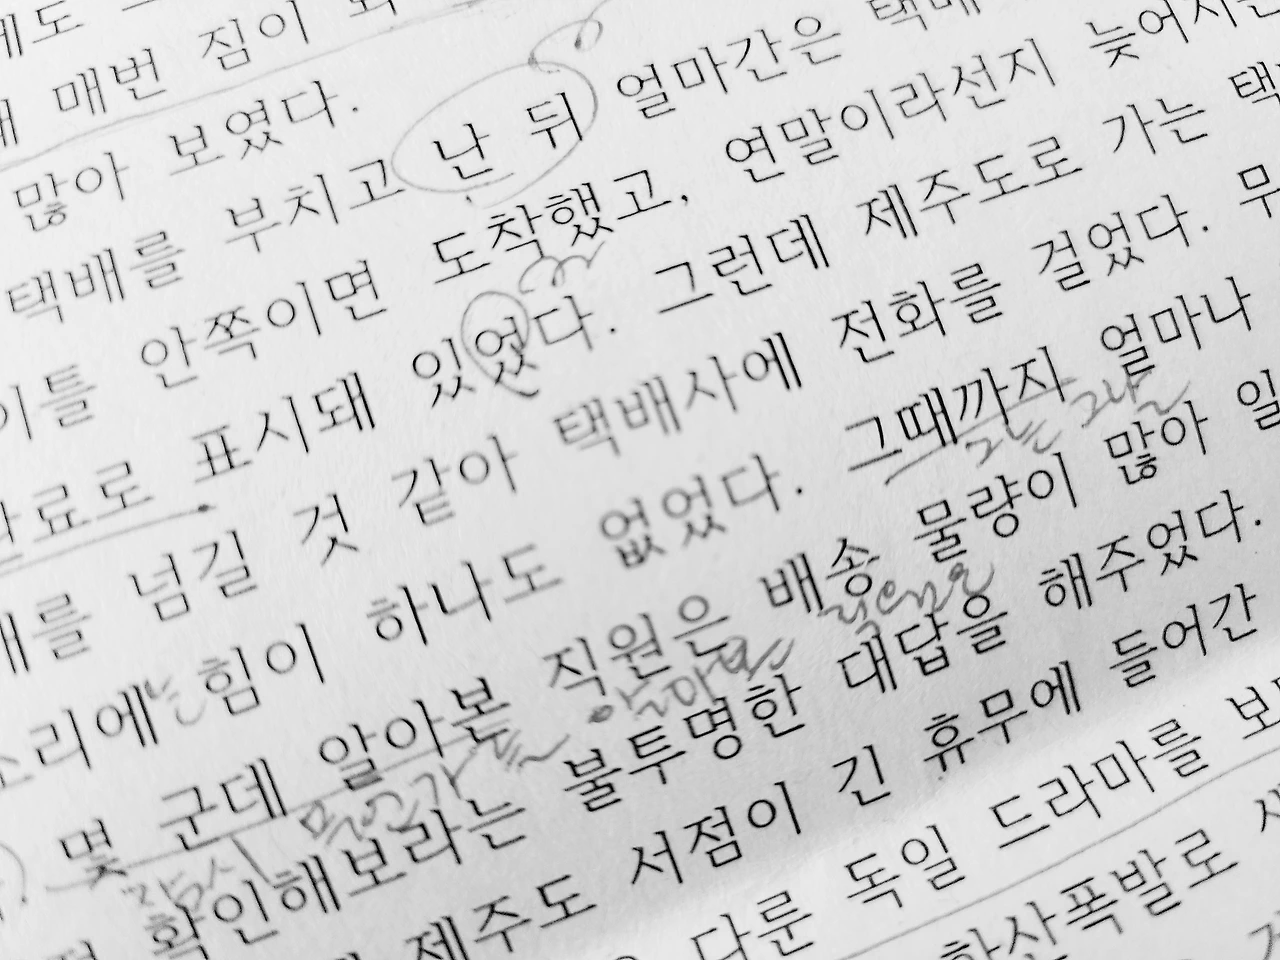 매번 짐이
많아 보였다.
택배를 부치고 난 뒤 얼마간은 택배
이틀 안쪽이면 도착했고, 연말이라선지 늦어지는
표시돼 있었다. 그런데 제주도로 가는 택
를 넘길 것 같아 택배사에 전화를 걸었다. 무
소리에 힘이 하나도 없었다. 그때까지 얼마나
몇 군데 알아본 직원은 배송 물량이 많아 일
확인해보라는 불투명한 대답을 해주었다.
제주도 서점이 긴 휴무에 들어간
다룬 독일 드라마를
화산폭발로